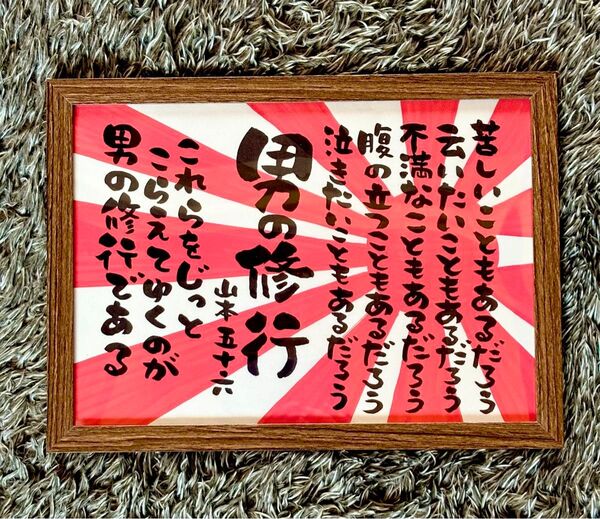 苦しいこともあるだろう
云いたいこともあるだろう
不満なこともあるだろう
腹の立つこともあるだろう
泣きたいこともあるだろう
男の修行
山本五十六
これらをじっと
こらえてゆくのが
男の修行である